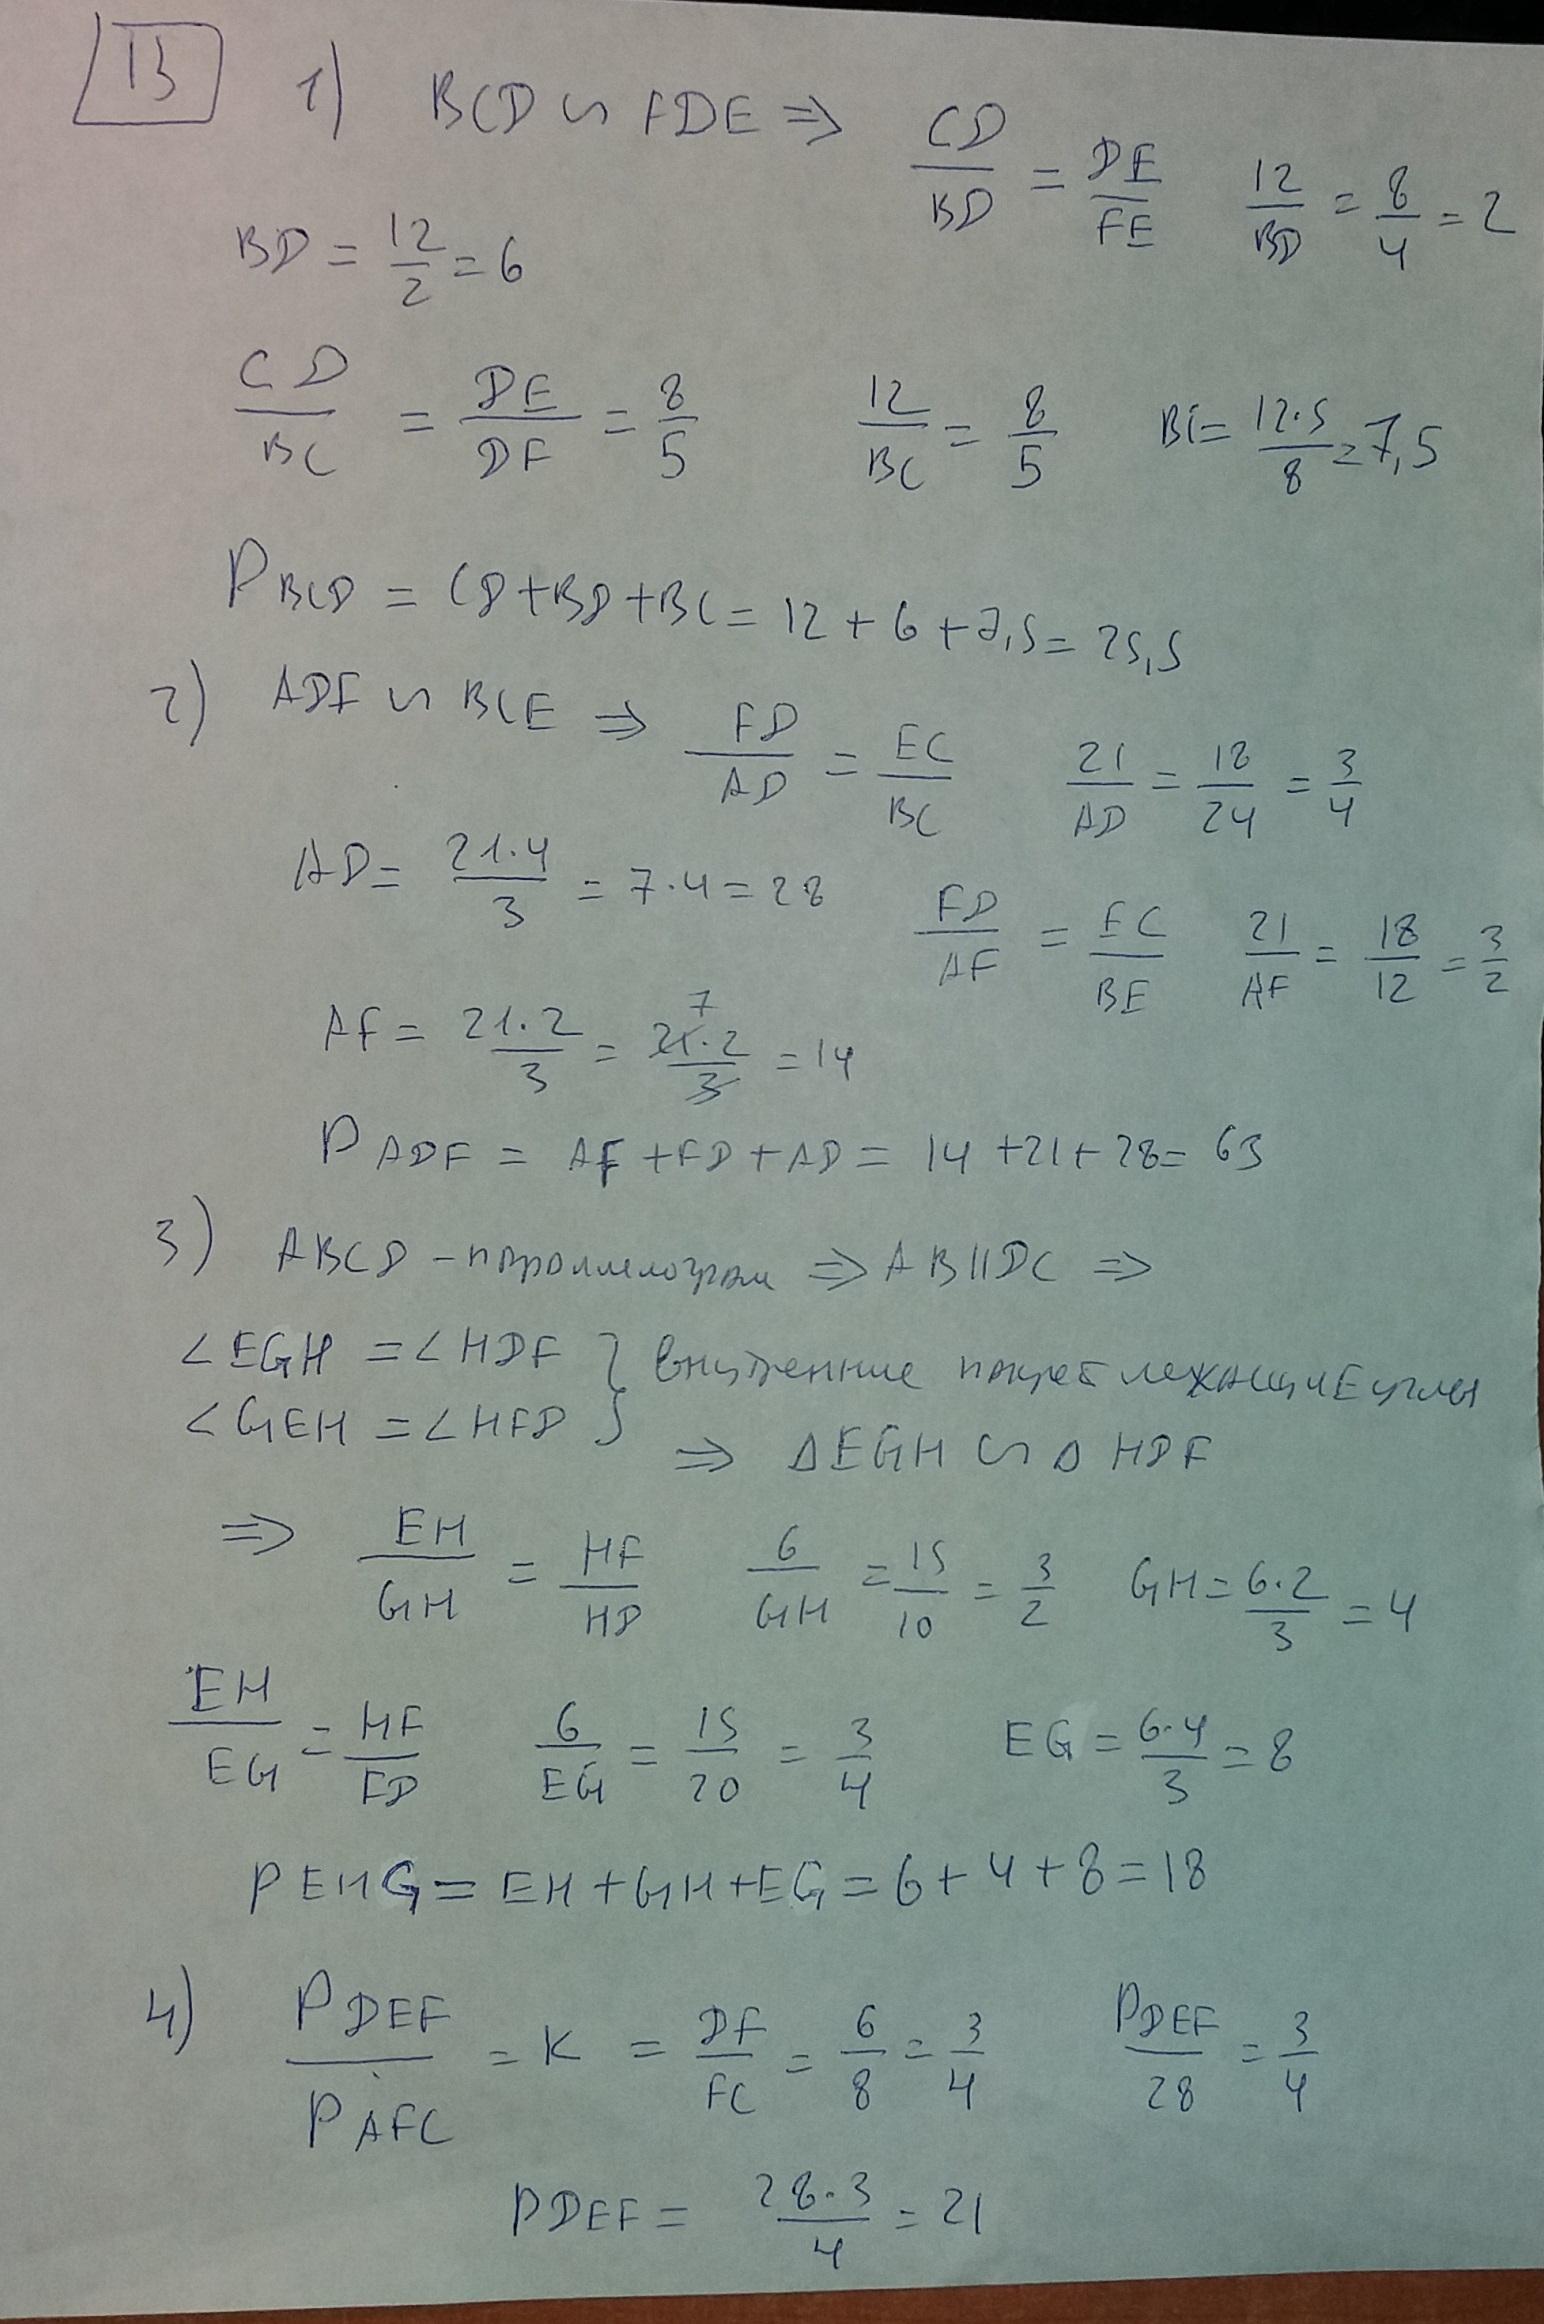 13
1) BCD ∽ FDE ⇒ CD/BD = DE/FE 12/BD = 8/4 = 2
BD = 12/2 = 6
CD/BC = DE/DF = 8/5 12/BC = 8/5 BC = 12·5/8 = 7,5
P BCD = CD + BD + BC = 12 + 6 + 7,5 = 25,5
2) ADF ∽ BCE ⇒ FD/AD = EC/BC 21/AD = 18/24 = 3/4
AD = 21·4/3 = 7·4 = 28 FD/AF = EC/BE 21/AF = 18/12 = 3/2
AF = 21·2/3 = 7 21·2/3 = 14
P ADF = AF + FD + AD = 14 + 21 + 28 = 63
3) ABCD – параллелограм ⇒ AB || DC ⇒
∠EGH = ∠HDF } внутренние накрест лежащие углы
∠GEH = ∠HFD
⇒ ΔEGH ∽ Δ HDF
⇒ EH/GH = HF/HD 6/GH = 15/10 = 3/2 GH = 6·2/3 = 4
EH/EG = HF/FD 6/EG = 15/20 = 3/4 EG = 6·4/3 = 8
P EHG = EH + GH + EG = 6 + 4 + 8 = 18
4) P DEF/P AFC = K = DF/FC = 6/8 = 3/4 P DEF/28 = 3/4
P DEF = 28·3/4 = 21